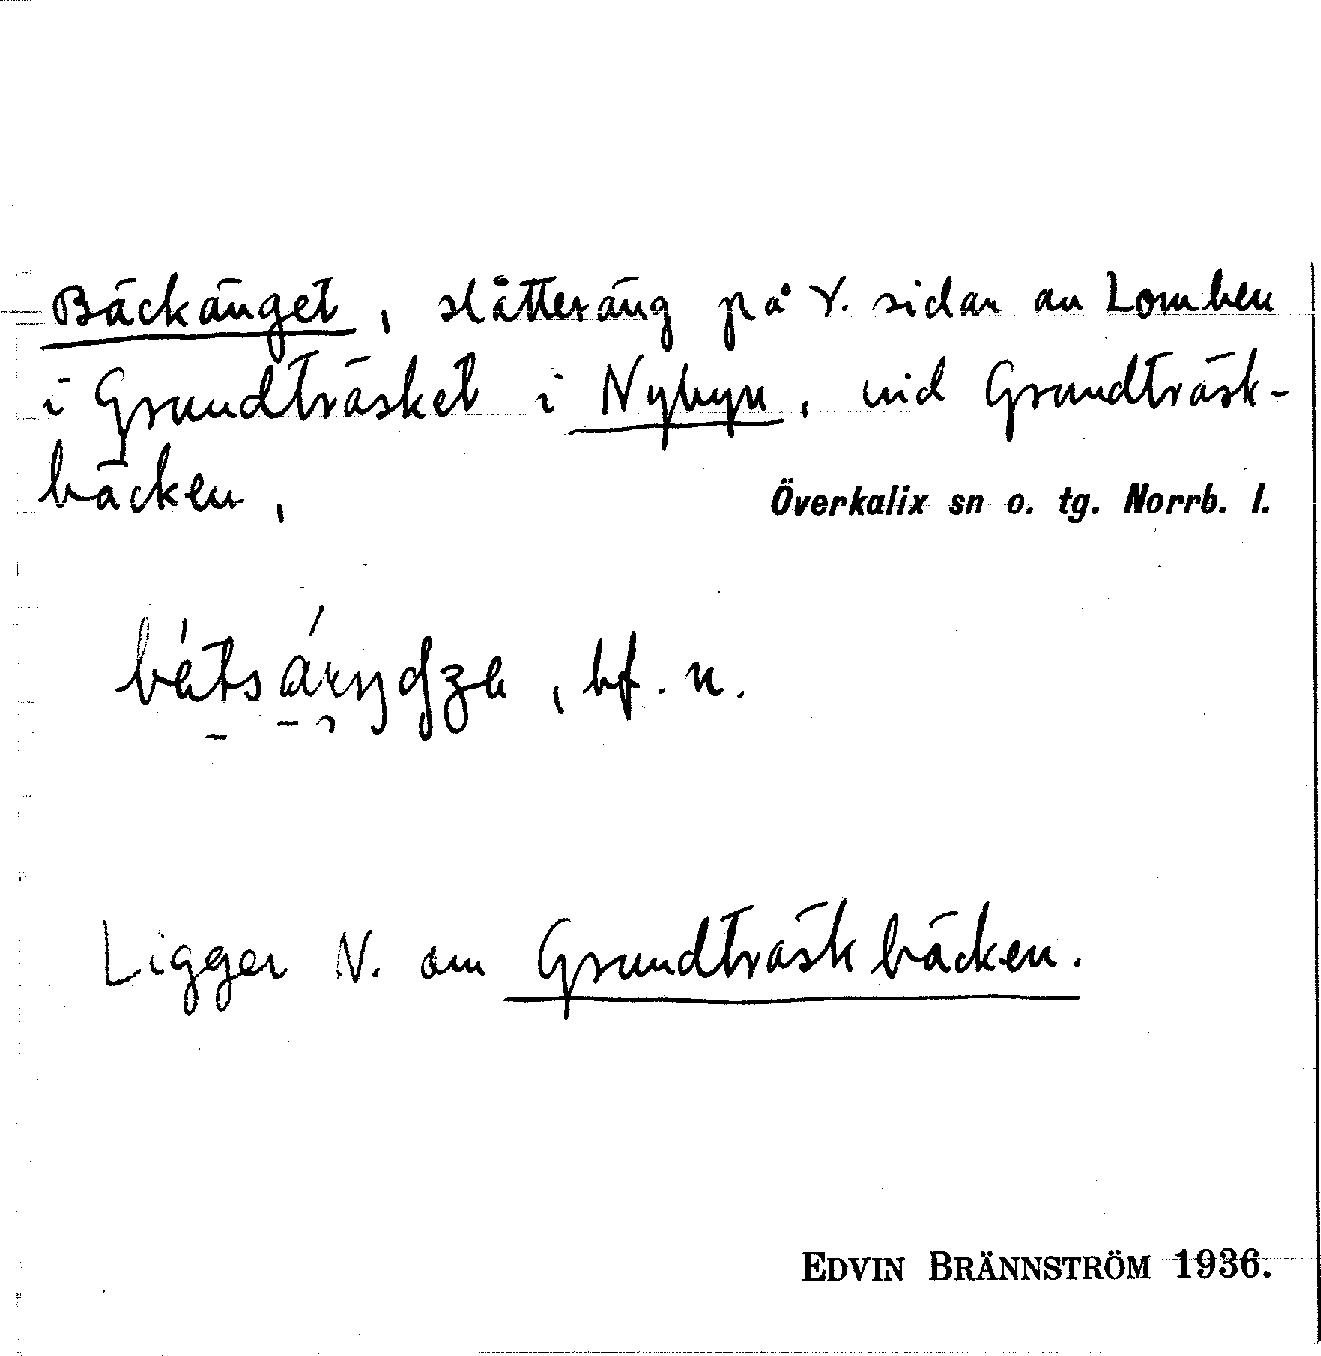 Bäckänget, slåtteräng på V. sidan av Lomben
i Grundträsket i Nybyn, vid Grundträsk-
bäcken,
Överkalix sn o. tg. Norrb. l.
bf. n.
Ligger N. om Grundträskbäcken.
EDVIN BRÄNNSTRÖM 1936.